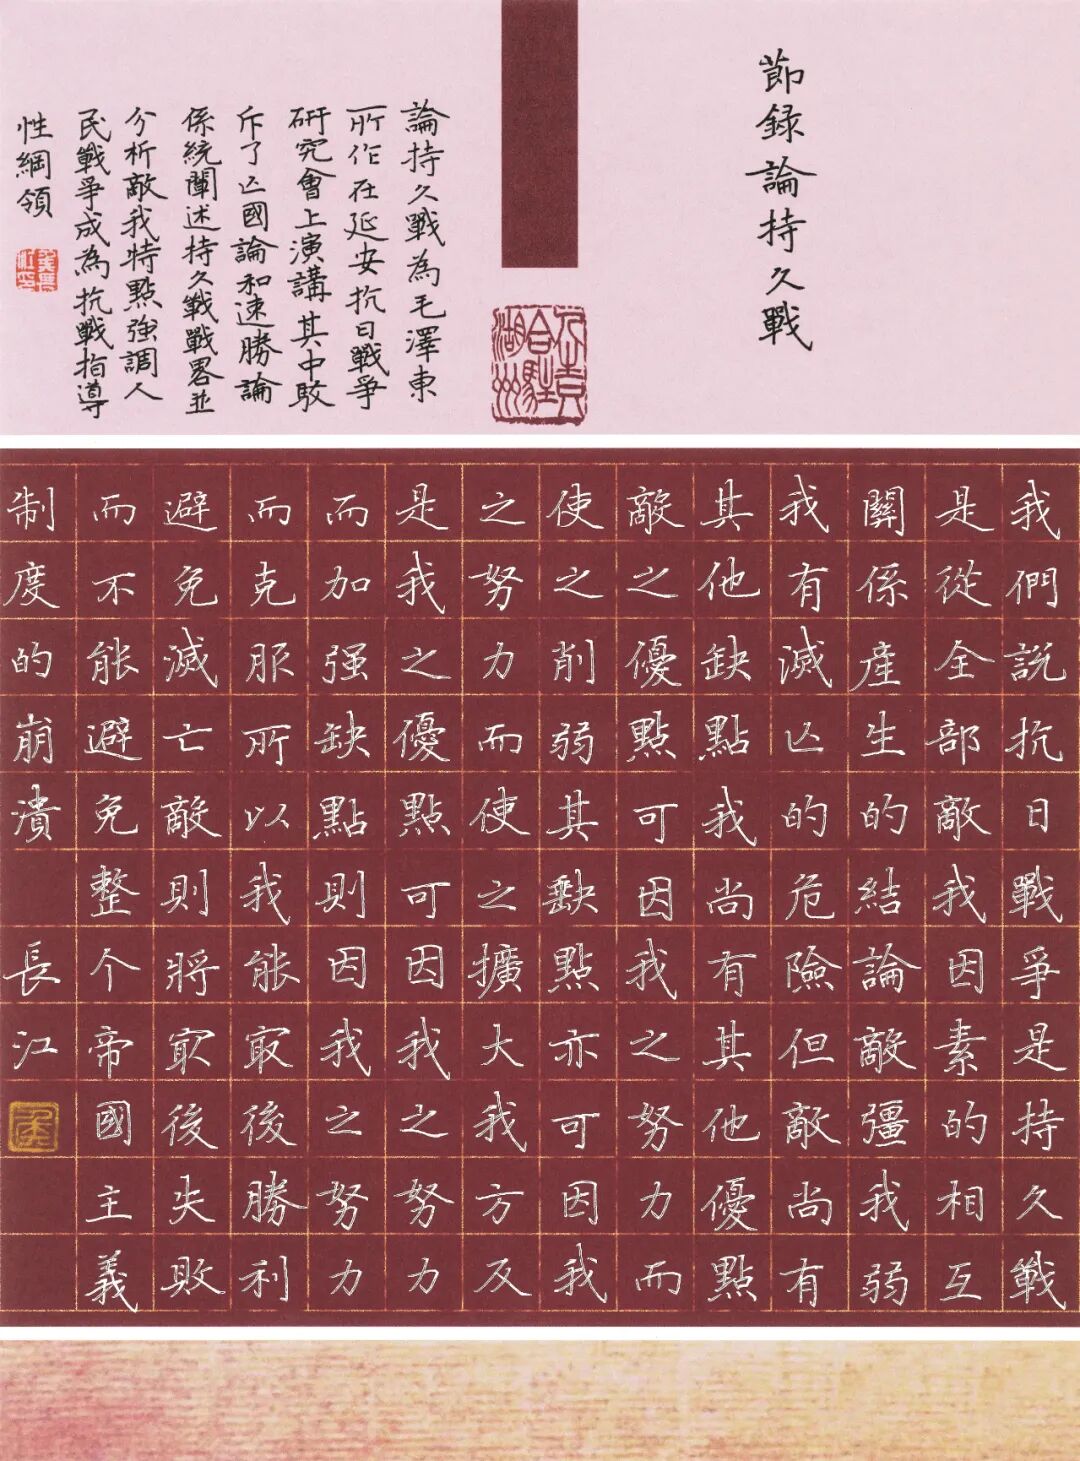 節録論持久戰
論持久戰為毛澤東
所作在延安抗日戰爭
研究會上演講其中駁
斥了亾國論和速勝論
係統闡述持久戰戰畧並
分析敵我特點強調人
民戰爭成為抗戰指導
性綱領
我們説抗日戰爭是持久戰
是從全部敵我因素的相互
關係産生的結論敵彊我弱
我有滅亾的危險但敵尚有
其他缺點我尚有其他優點
敵之優點可因我之努力而
使之削弱其缺點亦可因我
之努力而使之擴大我方反
是我之優點可因我之努力
而加强缺點則因我之努力
而克服所以我能冣後勝利
避免滅亡敵則將冣後失敗
而不能避免整个帝國主義
制度的崩潰 長江